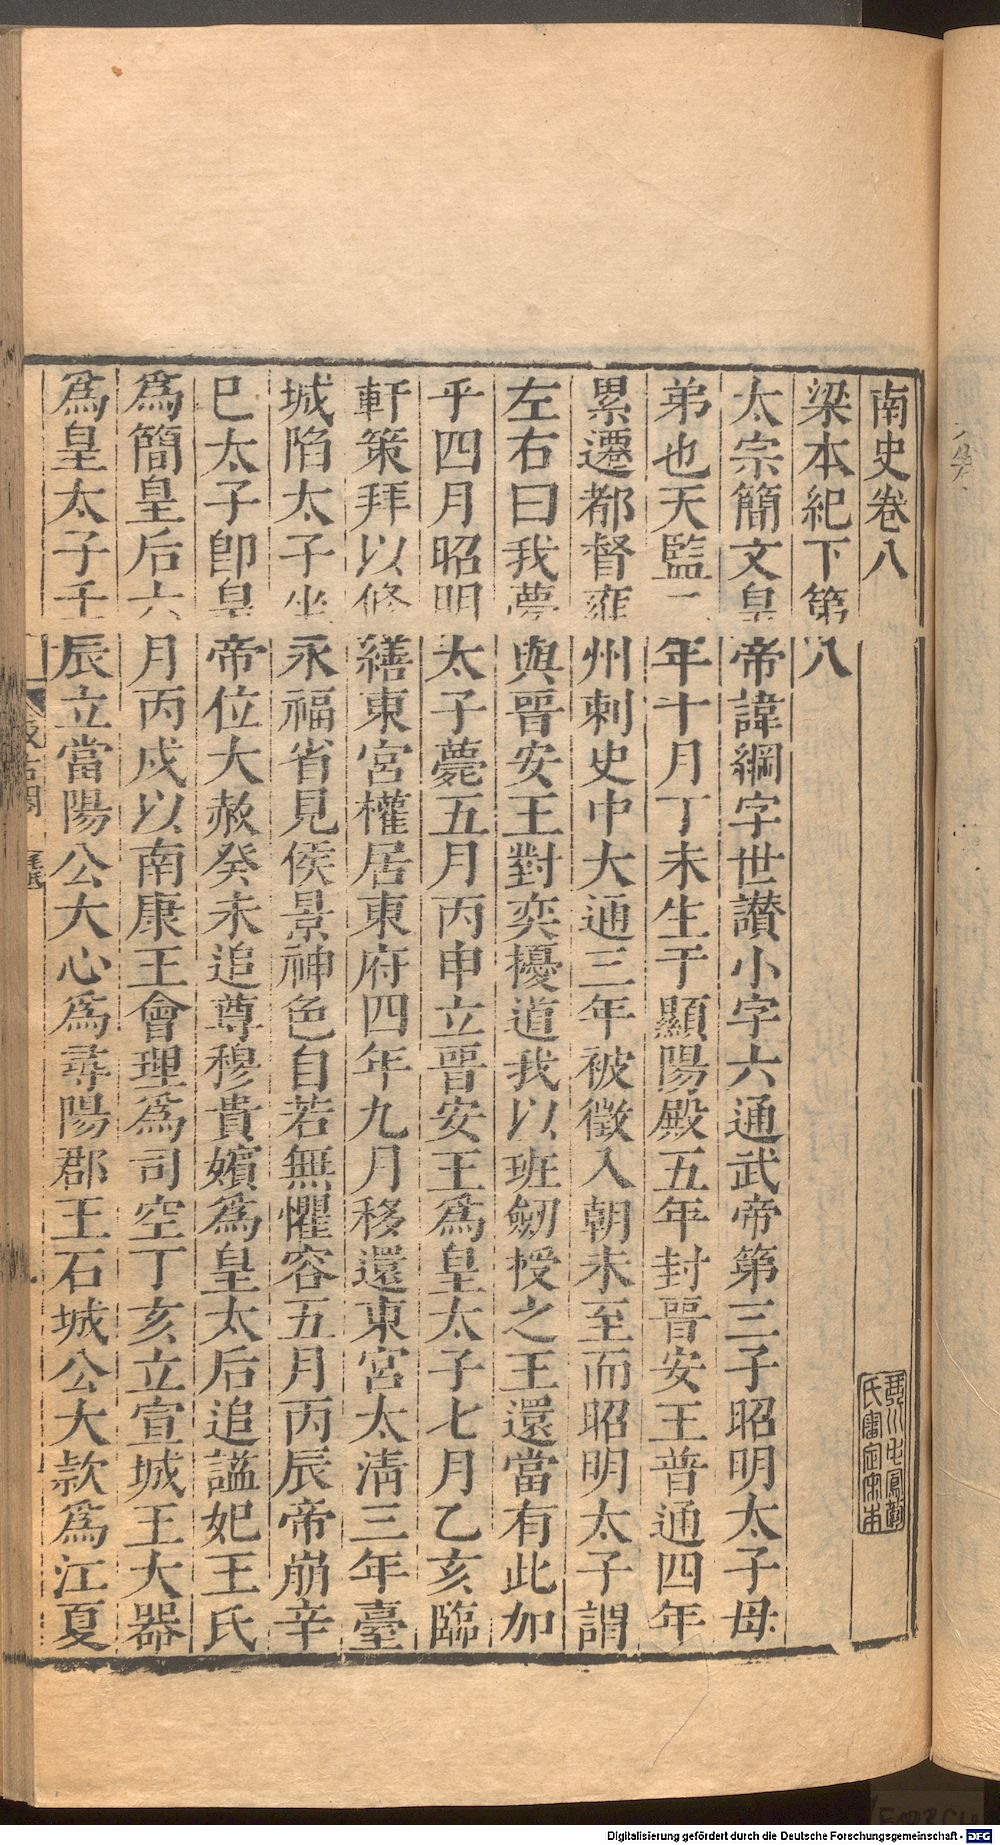 南史卷八
琴川毛鳳苞氏審定宋本
梁本紀下第八
太宗簡文皇帝諱綱字世讃小字六通武帝第三子昭明太子母
弟也天監二年十月丁未生于顯陽殿五年封晉安王普通四年
累遷都督雍州刺史中大通三年被徵入朝未至而昭明太子謂
左右曰我夢與晉安王對奕擾道我以班劒授之王還當有此加
乎四月昭明太子薨五月丙申立晉安王爲皇太子七月乙亥臨
軒策拜以修繕東宮權居東府四年九月移還東宮太淸三年臺
城陷太子坐永福省見侯景神色自若無懼容五月丙辰帝崩辛
巳太子卽皇帝位大赦癸未追尊穆貴嬪爲皇太后追諡妃王氏
爲簡皇后六月丙戌以南康王會理爲司空丁亥立宣城王大器
爲皇太子壬辰立當陽公大心爲尋陽郡王石城公大款爲江夏
Digitalisierung gefördert durch die Deutsche Forschungsgemeinschaft - DFG